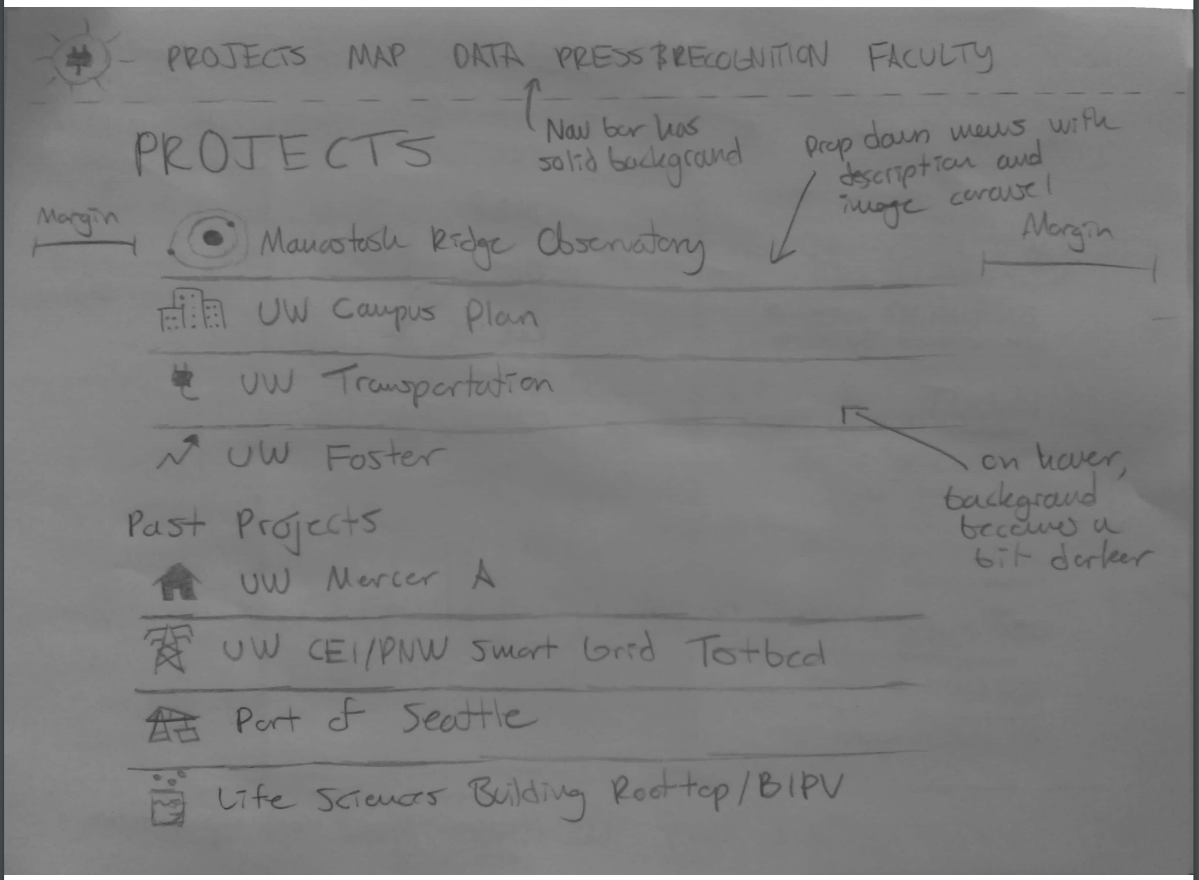 PROJECTS MAP DATA PRESS & RECOGNITION FACULTY
PROJECTS
Nav bar has
solid background
Drop down menus with
description and
image carousel
Margin
Margin
Manastash Ridge Observatory
UW Campus Plan
UW Transportation
UW Foster
on hover,
background
becomes a
bit darker
Past Projects
UW Mercer A
UW CEI/PNW Smart Grid Testbed
Port of Seattle
Life Sciences Building Rooftop/BIPV